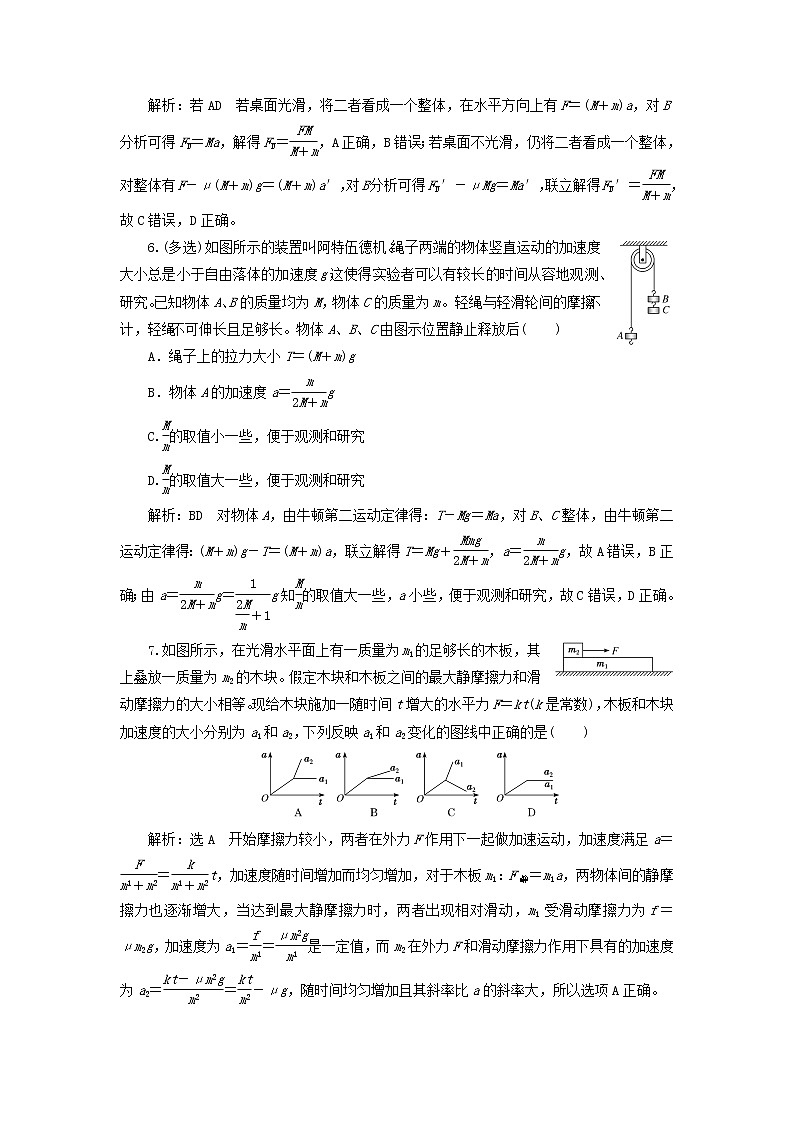 解析:若 AD 若桌面光滑,将二者看成一个整体,在水平方向上有 F=(M+m)a,对 B
分析可得 F_N=Ma,解得 F_N=FM/(M+m),A 正确,B 错误;若桌面不光滑,仍将二者看成一个整体,
对整体有 F-μ(M+m)g=(M+m)a′,对 B 分析可得 F_N′-μMg=Ma′,联立解得 F_N′=FM/(M+m),
故 C 错误,D 正确。
6.(多选)如图所示的装置叫阿特伍德机,绳子两端的物体竖直运动的加速度
大小总是小于自由落体的加速度 g,这使得实验者可以有较长的时间从容地观测、
研究。已知物体 A、B 的质量均为 M,物体 C 的质量为 m。轻绳与轻滑轮间的摩擦不
计,轻绳不可伸长且足够长。物体 A、B、C 由图示位置静止释放后( )
B
C
A
A.绳子上的拉力大小 T=(M+m)g
B.物体 A 的加速度 a=m/(2M+m)g
C.M/m的取值小一些,便于观测和研究
D.M/m的取值大一些,便于观测和研究
解析:BD 对物体 A,由牛顿第二运动定律得:T-Mg=Ma,对 B、C 整体,由牛顿第二
运动定律得:(M+m)g-T=(M+m)a,联立解得 T=Mg+Mmg/(2M+m),a=m/(2M+m)g,故 A 错误,B 正
确;由 a=m/(2M+m)g=1/(2M/m+1)g 知M/m的取值大一些,a 小些,便于观测和研究,故 C 错误,D 正确。
7.如图所示,在光滑水平面上有一质量为 m₁的足够长的木板,其
上叠放一质量为 m₂的木块。假定木块和木板之间的最大静摩擦力和滑
动摩擦力的大小相等。现给木块施加一随时间 t 增大的水平力 F=kt(k 是常数),木板和木块
加速度的大小分别为 a₁和 a₂,下列反映 a₁和 a₂变化的图线中正确的是( )
m₂ F
m₁
a a₂ a₁ O t A
a a₂ a₁ O t B
a a₁ a₂ O t C
a a₂ a₁ O t D
解析:选 A 开始摩擦力较小,两者在外力 F 作用下一起做加速运动,加速度满足 a=
F/(m¹+m²)=k/(m¹+m²)t,加速度随时间增加而均匀增加,对于木板 m₁:F静=m₁a,两物体间的静摩
擦力也逐渐增大,当达到最大静摩擦力时,两者出现相对滑动,m₁ 受滑动摩擦力为 f=
μm₂g,加速度为 a₁=f/m¹=μm²g/m¹是一定值,而 m₂在外力 F 和滑动摩擦力作用下具有的加速度
为 a₂=(kt-μm²g)/m²=kt/m²-μg,随时间均匀增加且其斜率比 a 的斜率大,所以选项 A 正确。